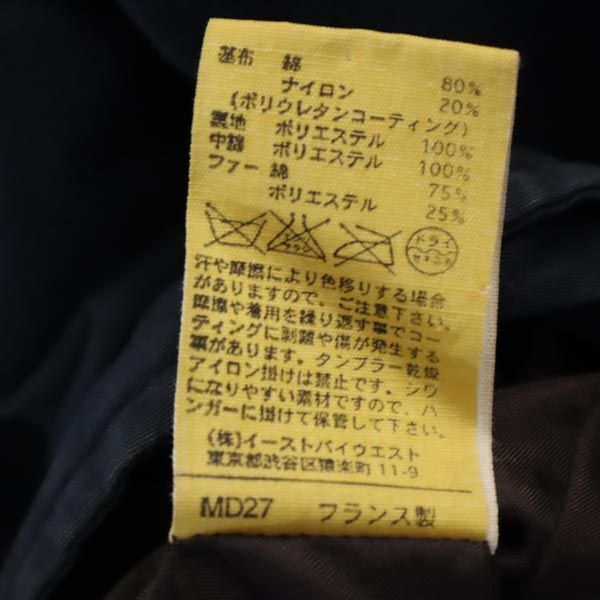 基布 綿 80%
ナイロン 20%
(ポリウレタンコーティング)
裏地 ポリエステル 100%
中綿 ポリエステル 100%
ファー 綿 75%
ポリエステル 25%
ドライ
セキユ系
汗や摩擦により色移りする場合
がありますので、ご注意下さい。
摩擦や着用を繰り返す事でコー
ティングに剥離や傷が発生する
事があります。タンブラー乾燥
アイロン掛けは禁止です。シワ
になりやすい素材ですので、ハ
ンガーに掛けて保管して下さい。
(株)イーストバイウエスト
東京都渋谷区猿楽町 11-9
MD27 フランス製